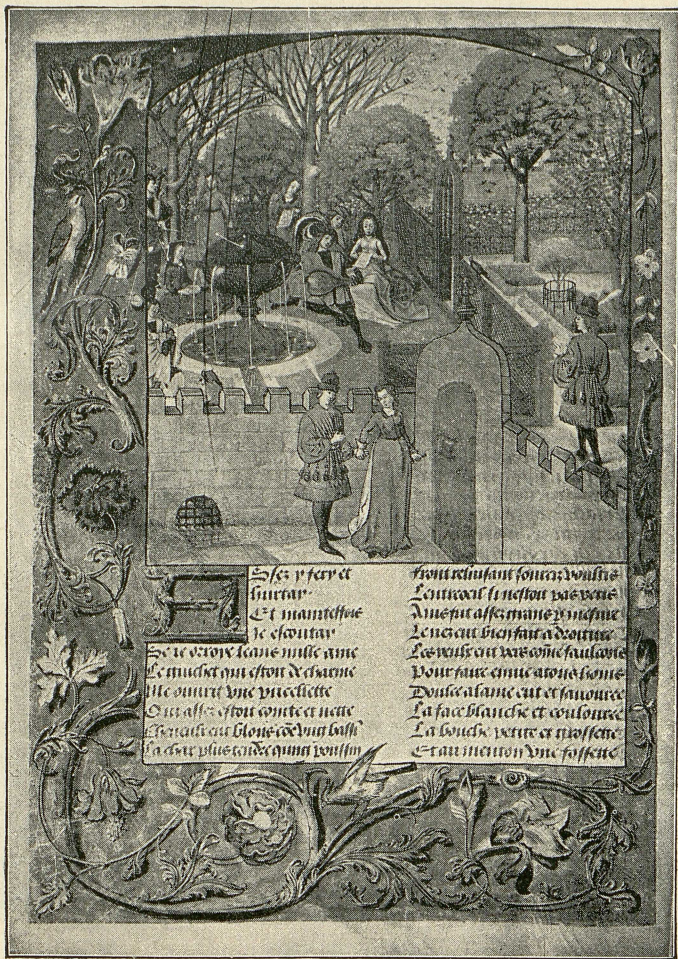 Assez y fery et
hurtay
Et maintessois
je escoutay
Se je orroye leans nulle ame
Le guichet qui estoit de charme
Me ouurit vne pucellette
Qui assez estoit cointe et nette
Cheueulx eut blons cõe vng bassĩ
La char plus tendre qung poussin
Front reluisant sourcez voultis
Lentroeil si nestoit pas petis
Ains fut assez grans p mesure
Le nez eut bien fait a droiture
Les yeulx eut vers cõme faulcons
Pour faire enuie a tous homs
Doulce alaine eut et sauouree
La face blanche et coulouree
La bouche petite et grossette
Et au menton vne fossette